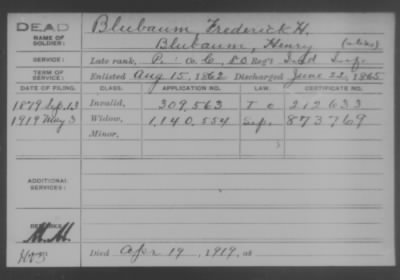 DEAD
NAME OF SOLDIER: Blubaum Frederick H.
Blubaum, Henry (alias)
SERVICE: Late rank, P. Co. C, 80 Reg't Ind Inf
TERM OF SERVICE: Enlisted Aug 15, 1862 Discharged June 22, 1865
DATE OF FILING. CLASS. APPLICATION NO. LAW. CERTIFICATE NO.
1879 Sep. 13 Invalid, 309,563 212633
1919 May 3 Widow, 1,140,554 873769
Minor,
ADDITIONAL SERVICES:
REMARKS:
Died Apr 19, 1919, at